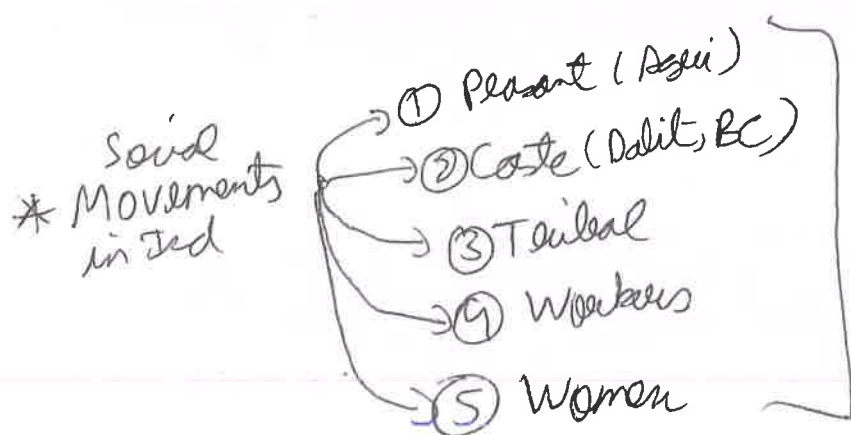 Social
* Movements
in Ind
① Peasant (Agri)
② Caste (Dalit, BC)
③ Tribal
④ Workers
⑤ Women